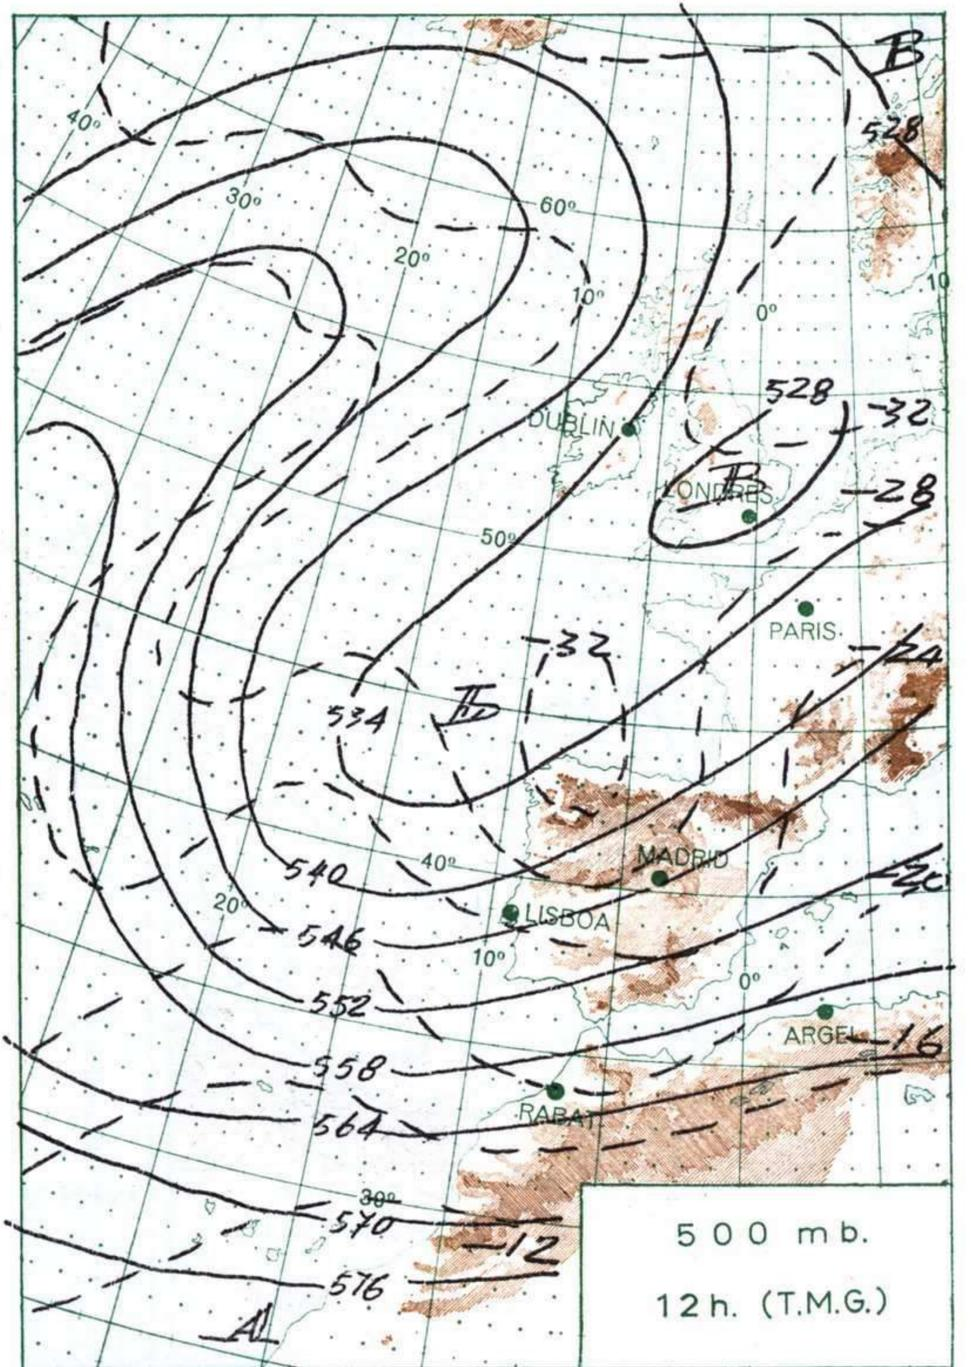 B
528
40°
30°
60°
20°
10°
10
0°
528
-32
DUBLIN
B
LONDRES
-28
50°
PARIS
-32
-24
B
534
MADRID
40°
540
20°
LISBOA
546
10°
0°
552
ARGEL
-16
558
RABAT
564
30°
570
-12
576
A
500 mb.
12h. (T.M.G.)